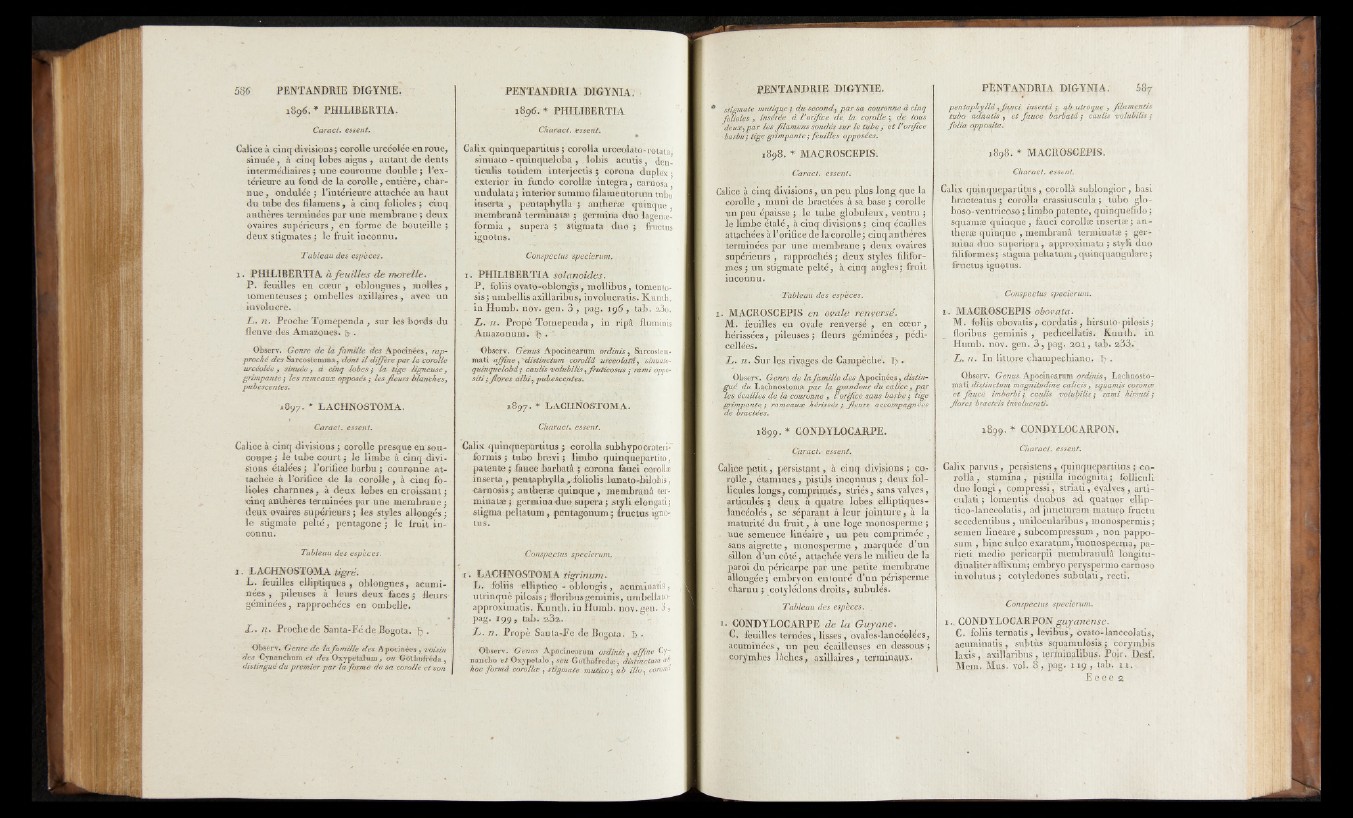 586 PENTANDRIE DIGYNIE.
1896. * PHILIBERTIA.
Caract. essent.
Calice à cinq divisions; corolle urcéolée en roue,
sinuée, à cinq lobes aigus, autant de dents
intermédiaires; une couronne double; l'ex-
térieure au fond de la corolle, entière, char-
nue, ondulée; l'intérieure attachée au haut
du tube des filamens, à cinq folioles; cinq
anthères terminées par une membrane; deux
ovaires supérieurs, en forme de bouteille;
deux stigmates; le fruit inconnu.
Tableau des espèces.
1. PHILIBERTIA à feuilles de morelle.
P. feuilles en cœur, oblongues, molles,
tomenteuses; ombelles axillaires, avec un
involucre.
L. n. Proche Tomependa, sur les bords du
fleuve des Amazones. ♄.
Observ. Genre de la famille des Apocinées, rap-
proché des Sarcostemma, dont il diffère par la corolle
urcéolée, sinuée, à cinq lobes; la tige ligneuse,
grimpante; les rameaux opposés; les fleurs blanches,
pubescentes.
1897. * LACHNOSTOMA.
Caract. essent.
Calice à cinq divisions; corolle presque en sou-
coupe; le tube court; le limbe à cinq divi-
sions étalées; l'orifice barbu; couronne at-
tachée à l'orifice de la corolle, à cinq fo-
lioles charnues, à deux lobes en croissant;
cinq anthères terminées par une membrane;
deux ovaires supérieurs; les styles allongés;
le stigmate pelté, pentagone; le fruit in-
connu.
Tableau des espèces.
1. LACHNOSTOMA tigré.
L. feuilles elliptiques, oblongues, acumi-
nées, pileuses à leurs deux faces; fleurs
géminées, rapprochées en ombelle.
L. n. Proche de Santa-Fé de Bogota. ♄.
Observ. Genre de la famille des Apocinées, voisin
des Cynanchum et des Oxypetalum, ou Gothofreda,
distingué du premier par la forme de sa corolle et son
PENTANDRIA DIGYNIA.
1896. * PHILIBERTIA
Charact. essent.
Calix quinquepartitus; corolla urceolato-rotata,
sinuato-quinqueloba, lobis acutis, den-
ticulis totidem interjectis; corona duplex;
exterior in fundo corollæ integra, carnosa,
undulata; interior summo filamentorum tubo
inserta, pentaphylla; antheræ quinque,
membranâ terminatæ; germina duo lagenæ-
formia, supera; stigmata duo; fructus
ignotus.
Conspectus specierum.
1. PHILIBERTIA solanoides.
P. foliis ovato-oblongis, mollibus, tomento-
sis; umbellis axillaribus, involucratis. Kunth.
in Humb. nov. gen. 3, pag. 196, tab. 230.
L. n. Propè Tomependa, in ripâ fluminis
Amazonum. ♄.
Observ. Genus Apocinearum ordinis, Sarcostem-
mati affine, distinctum corollâ urceolatâ, sinuato-
quinquelobâ; caulis volubilis, fruticosus; rami oppo-
siti; flores albi, pubescentes.
1897. * LACHNOSTOMA.
Charact. essent.
Calix quinquepartitus; corolla subhypocrateri-
formis; tubo brevi; limbo quinquepartito,
patente; fauce barbatâ; corona fauci corollæ
inserta, pentaphylla, foliolis lunato-bilobis,
carnosis; antheræ quinque, membranâ ter-
minatæ; germina duo supera; styli elongati;
stigma peltatum, pentagonum; fructus igno-
tus.
Conspectus specierum.
1. LACHNOSTOMA tigrinum.
L. foliis elliptico-oblongis, acuminatis,
utrinquè pilosis; floribus geminis, umbellato-
approximatis. Kunth. in Humb. nov. gen. 3,
pag. 199, tab. 232.
L. n. Propè Santa-Fe de Bogota. ♄.
Observ. Genus Apocinearum ordinis, affine Cy-
nancho et Oxypetalo, seu Gothofredæ, distinctum ab
hoc formâ corollæ, stigmate mutico; ab illo, coronâ
PENTANDRIE DIGYNIE.
stigmate mutique; du second, par sa couronne à cinq
folioles, insérée à l'orifice de la corolle; de tous
deux, par les filamens soudés sur le tube, et l'orifice
barbu; tige grimpante; feuilles opposées.
1898. * MACROSCEPIS.
Caract. essent.
Calice à cinq divisions, un peu plus long que la
corolle, muni de bractées à sa base; corolle
un peu épaisse; le tube globuleux, ventru;
le limbe étalé, à cinq divisions; cinq écailles
attachées à l'orifice de la corolle; cinq anthères
terminées par une membrane; deux ovaires
supérieurs, rapprochés; deux styles filifor-
mes; un stigmate pelté, à cinq angles; fruit
inconnu.
Tableau des espèces.
1. MACROSCEPIS en ovale renversé.
M. feuilles en ovale renversé, en cœur,
hérissées, pileuses; fleurs géminées, pédi-
cellées.
L. n. Sur les rivages de Campêche. ♄.
Observ. Genre de la famille des Apocinées, distin-
gué du Lachnostoma par la grandeur du calice, par
les écailles de la couronne, l'orifice sans barbe; tige
grimpante; rameaux hérissés; fleurs accompagnées
de bractées.
1899. * CONDYLOCARPE.
Caract. essent.
Calice petit, persistant, à cinq divisions; co-
rolle, étamines, pistils inconnus; deux fol-
licules longs, comprimés, striés, sans valves,
articulés; deux à quatre lobes elliptiques-
lancéolés, se séparant à leur jointure, à la
maturité du fruit, à une loge monosperme;
une semence linéaire, un peu comprimée,
sans aigrette, monosperme, marquée d'un
sillon d'un côté, attachée vers le milieu de la
paroi du péricarpe par une petite membrane
allongée; embryon entouré d'un périsperme
charnu; cotylédons droits, subulés.
Tableau des espèces.
1. CONDYLOCARPE de la Guyane.
C. feuilles ternées, lisses, ovales-lancéolées,
acuminées, un peu écailleuses en dessous;
corymbes lâches, axillaires, terminaux.
PENTANDRIA DIGYNIA. 587
pentaphyllâ, fauci insertâ; ab utroque, filamentis
tubo adnatis, et fauce barbatâ; caulis volubilis;
folia opposita.
1898. * MACROSCEPIS.
Charact. essent.
Calix quinquepartitus, corollâ sublongior, basi
bracteatus; corolla crassiuscula; tubo glo-
boso-ventricoso; limbo patente, quinquefido;
squamæ quinque, fauci corollæ insertæ; an-
theræ quinque, membranâ terminatæ; ger-
mina duo superiora, approximata; styli duo
filiformes; stigma peltatum, quinquangulare;
fructus ignotus.
Conspectus specierum.
1. MACROSCEPIS obovata.
M. foliis obovatis, cordatis, hirsuto-pilosis;
floribus geminis, pedicellatis. Kunth. in
Humb. nov. gen. 3, pag. 201, tab. 233.
L. n. In littore champechiano. ♄.
Observ. Genus Apocinearum ordinis, Lachnosto-
mati distinctum magnitudine calicis, squamis coronæ
et fauce imberbi; caulis volubilis; rami hirsuti;
flores bracteis involucrati.
1899. * CONDYLOCARPON.
Charact. essent.
Calix parvus, persistens, quinquepartitus; co-
rolla, stamina, pistilla incognita; folliculi
duo longi, compressi, striati, evalves, arti-
culati; lomentis duobus ad quatuor ellip-
tico-lanceolatis, ad juncturam maturo fructu
secedentibus, unilocularibus, monospermis;
semen lineare, subcompressum, non pappo-
sum, hinc sulco exaratum, monosperma, pa-
rieti medio pericarpii membranulâ longitu-
dinaliter affixum; embryo perysperno carnoso
involutus; cotyledones subulati, recti.
Conspectus specierum.
1. CONDYLOCARPON guyanense.
C. foliis ternatis, levibus, ovato-lanceolatis,
acuminatis, subtùs squamulosis; corymbis
laxis, axillaribus, terminalibus. Poir. Desf.
Mem. Mus. vol. 8, pag. 119, tab. 11.
Eeee 2